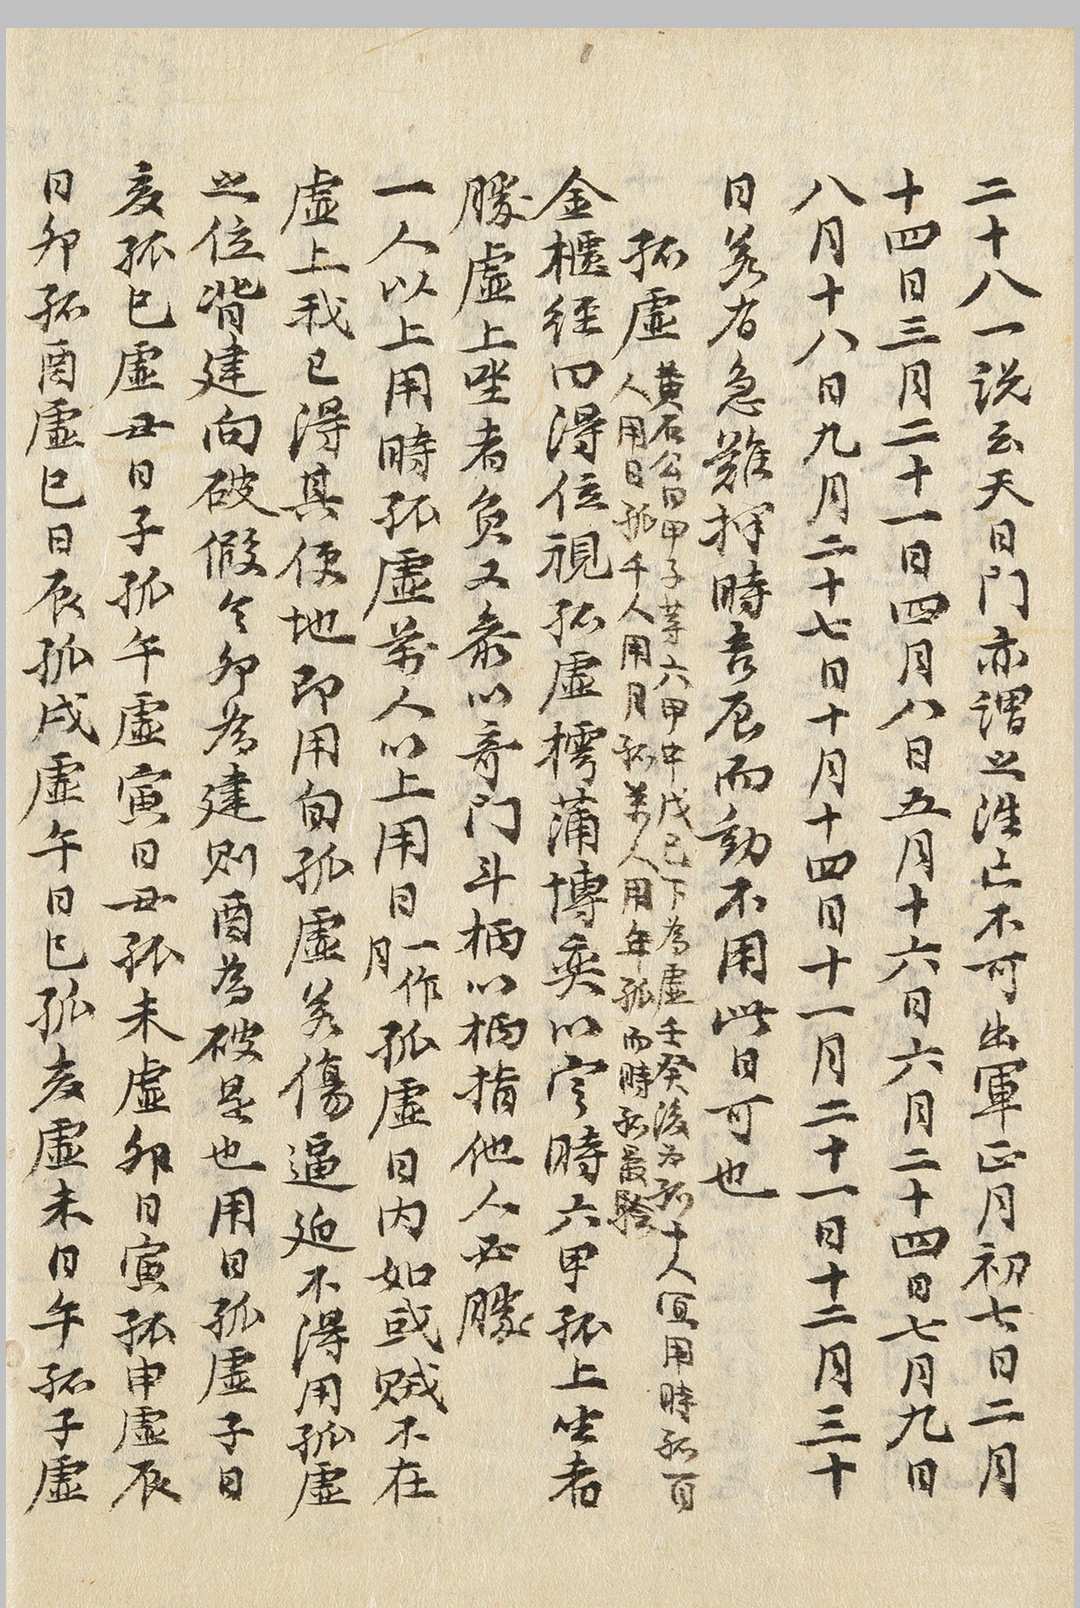 二十八一説云天日門亦謂之浩亡不可出軍正月初七日二月
十四日三月二十一日四月八日五月十六日六月二十四日七月九日
八月十八日九月二十七日十月十四日十一月二十一日十二月三十
日若有急難擇時吉辰而動不用此日可也
孤虛
黄石公曰甲子等六甲中戊己下為虛壬癸後為孤十人宜用時孤百
人用日孤千人用月孤萬人用年孤而時孤最驗
金樻經曰得位視孤虛樗蒲博奕以定時六甲孤上坐者
勝虛上坐者負又泰以奇門斗柄以柄指他人必勝
一人以上用時孤虛萬人以上用日
一作
月
孤虛日内如或賊不在
虛上我已得其便地即用旬孤虛若傷逼迫不得用孤虛
之位背建向破假令卯為建則酉為破是也用日孤虛子日
亥孤巳虛丑日子孤午虛寅日丑孤未虛卯日寅孤申虛辰
日卯孤酉虛巳日辰孤戌虛午日巳孤亥虛未日午孤子虛